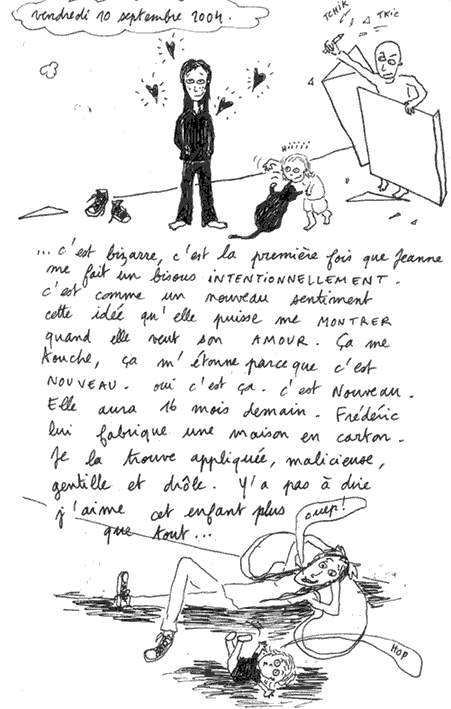 vendredi 10 septembre 2004.
TCHIK
TKIC
... c'est bizarre, c'est la première fois que Jeanne
me fait un bisous INTENTIONNELLEMENT.
c'est comme un nouveau sentiment
cette idée qu'elle puisse me MONTRER
quand elle veut son AMOUR. Ça me
touche, ça m'étonne parce que c'est
NOUVEAU. oui c'est ça. c'est Nouveau.
Elle aura 16 mois demain. Frédéric
lui fabrique une maison en carton.
Je la trouve appliquée, malicieuse,
gentille et drôle. Y'a pas à dire
j'aime cet enfant plus
que tout...
ouep!
HOP